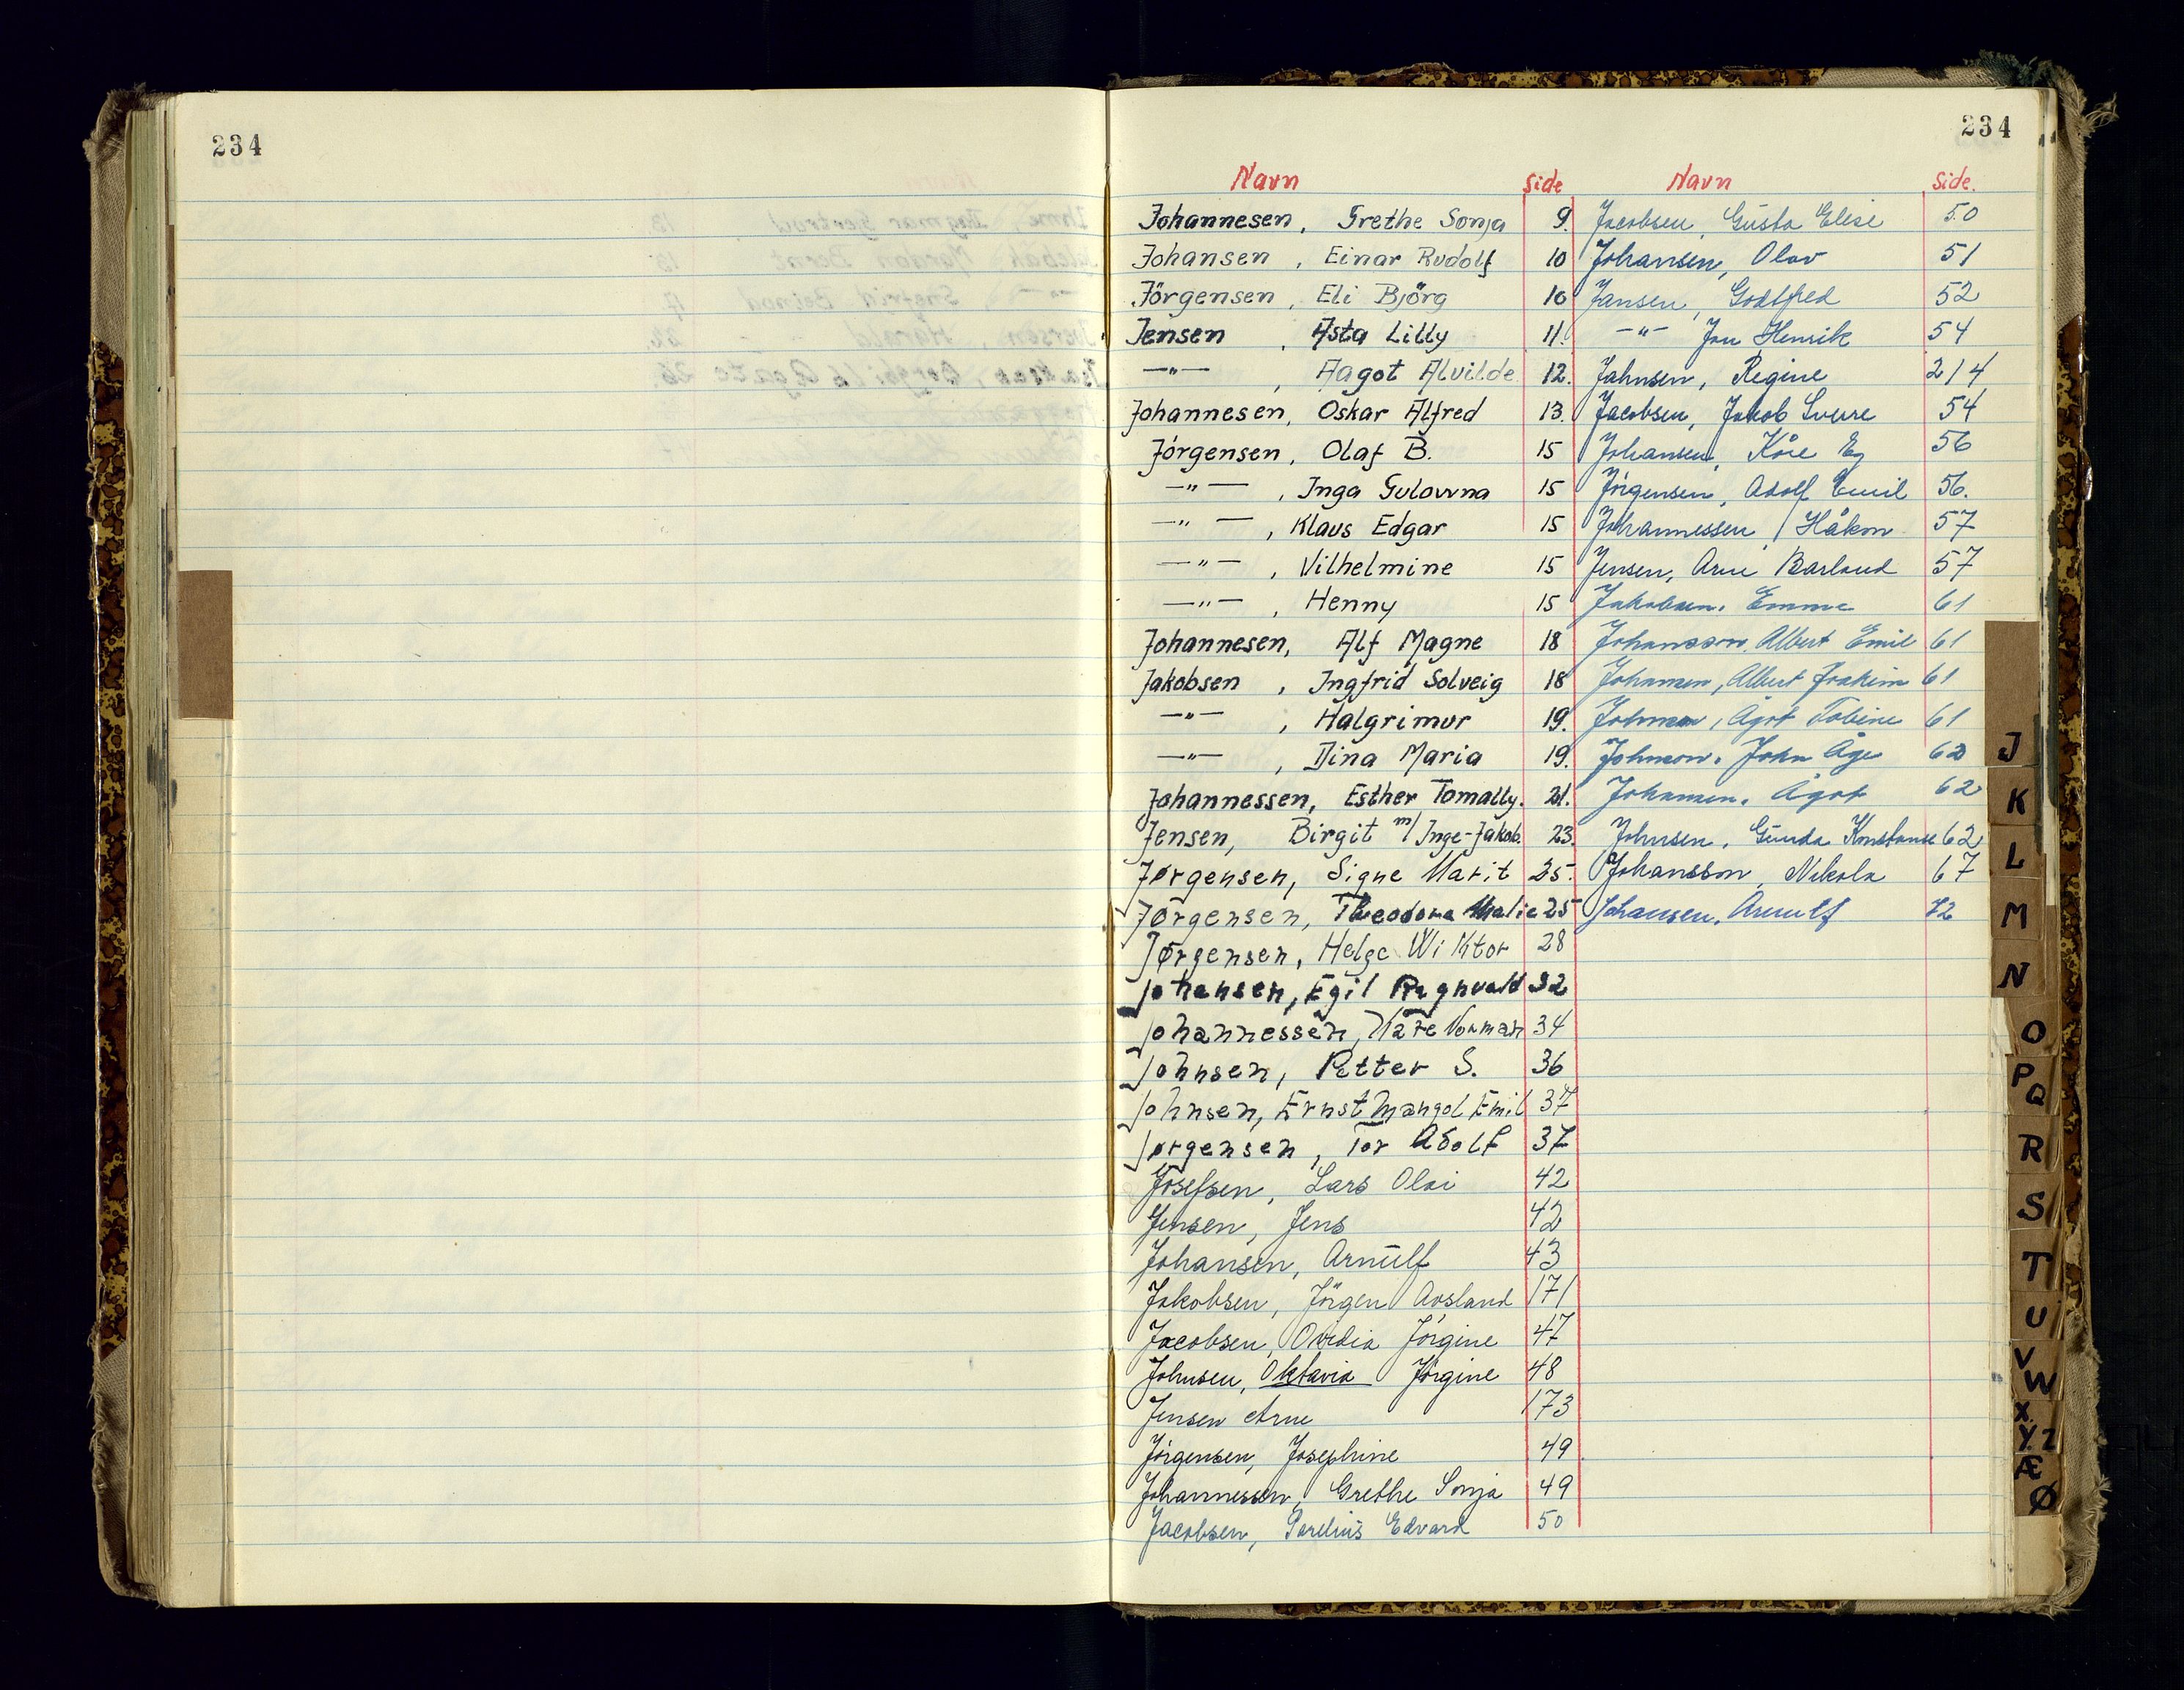 234
234
Navn Side Navn Side.
Johannesen, Grethe Sonja 9. Jacobsen, Gusta Elise 50
Johansen, Einar Rudolf 10 Johansen, Olav 51
Jörgensen, Eli Björg 10 Jansen, Godtfred 52
Jensen, Asta Lilly 11. —"— Jan Henrik 54
—"—, Aagot Alvilde 12. Jahnsen, Regine 214
Johannesen, Oskar Alfred 13. Jacobsen, Jakob Sverre 54
Jörgensen, Olaf B. 15 Johansen, Kåre Eg 56
—"—, Inga Gulovna 15 Jörgensen, Adolf Emil 56.
—"—, Klaus Edgar 15 Johannessen, Håkon 57
—"—, Vilhelmine 15 Jensen, Arne Barland 57
—"—, Henny 15 Jakobsen, Emma 61
Johannesen, Alf Magne 18 Johansson, Albert Emil 61
Jakobsen, Ingfrid Solveig 18 Johansen, Albert Joakim 61
—"—, Halgrimur 19. Johnsen, Ågot Tobine 61
—"—, Dina Maria 19. Johnson, John Åge 62
Johannessen, Esther Tomally. 21. Johansen, Ågot 62
Jensen, Birgit m/ Inge-Jakob. 23. Johnsen, Gunda Konstanse 62
Jørgensen, Signe Marit 25. Johansson, Nikola 67
Jørgensen, Theodora Malie 25 Johansen, Arnulf 72
Jørgensen, Helge Wiktor 28
Johansen, Egil Ragnvald 32
Johannessen, Kåre Norman 34
Johnsen, Petter S. 36
Johnsen, Ernst Mangol Emil 37
Jørgensen, Tor Adolf 37
Josefsen, Lars Olai 42
Jensen, Jens 42
Johansen, Arnulf 43
Jakobsen, Jörgen Aosland 171
Jacobsen, Ovidia Jörgine 47
Johnsen, Oktavia Jörgine 48
Jensen Arne 173
Jörgensen, Josephine 49
Johannessen, Grethe Sonja 49
Jacobsen, Sorelius Edvard 50
J
K
L
M
N
O
P
Q
R
S
T
U
V
W
X
Y Z
Æ
Ø